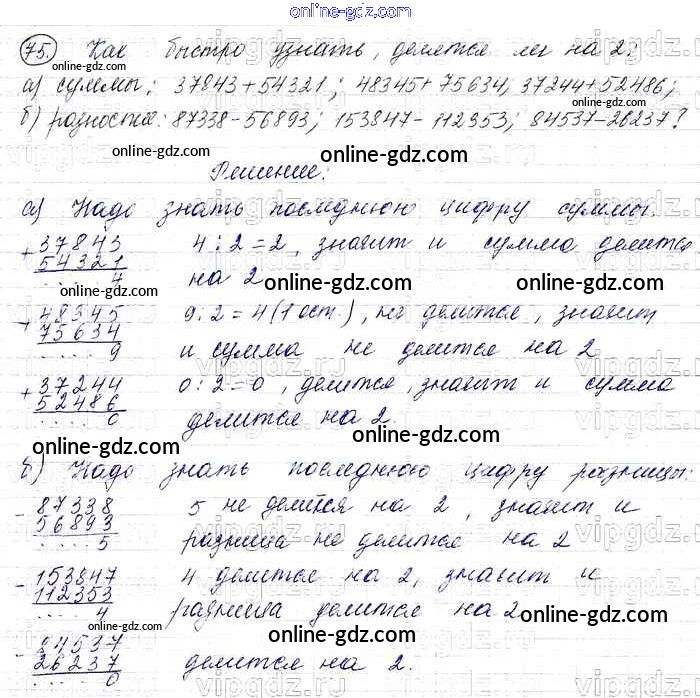 online-gdz.com
75. Как быстро узнать, делятся ли на 2:
а) суммы: 37843+54321; 48345+75634; 37244+52486;
online-gdz.com
б) разности: 87338-56893; 153847-112353; 84537-26237?
online-gdz.com
Решение:
online-gdz.com
а) Надо знать последнюю цифру суммы.
+ 37843 4:2=2, значит и сумма делится
54321
.... 4 на 2
online-gdz.com
+ 48345 9:2=4(1 ост.), не делится, значит
75634
.... 9 и сумма не делится на 2
online-gdz.com
+ 37244 0:2=0, делится, значит и сумма
52486
.... 0 делится на 2.
online-gdz.com
online-gdz.com
б) Надо знать последнюю цифру разницы:
- 87338 5 не делится на 2, значит и
56893
.... 5 разница не делится на 2
online-gdz.com
- 153847 4 делится на 2, значит и
112353
.... 4 разница делится на 2
online-gdz.com
- 84537
26237 делится на 2.
.... 0
online-gdz.com
online-gdz.com
vipgdz.ru